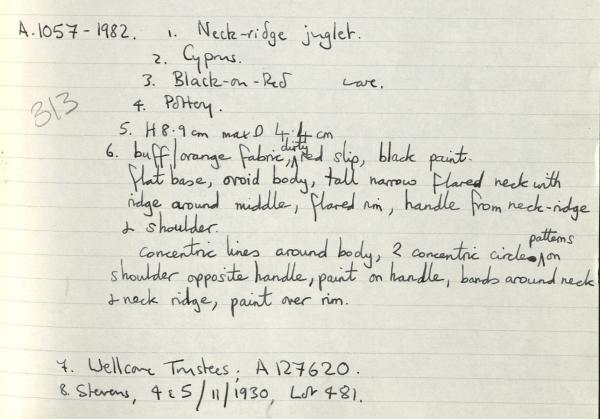 A.1057-1982. 1. Neck-ridge juglet.
2. Cyprus.
3. Black-on-Red ware.
313
4. Pottery.
5. H 8.9cm max D 4.4 cm
6. buff/orange fabric, dirty red slip, black paint.
flat base, ovoid body, tall narrow flared neck with
ridge around middle, flared rim, handle from neck-ridge
& shoulder.
concentric lines around body, 2 concentric circle patterns on
shoulder opposite handle, paint on handle, bands around neck
& neck ridge, paint over rim.
7. Wellcome Trustees; A127620.
8. Stevens, 4 & 5/11/1930, Lot 481.